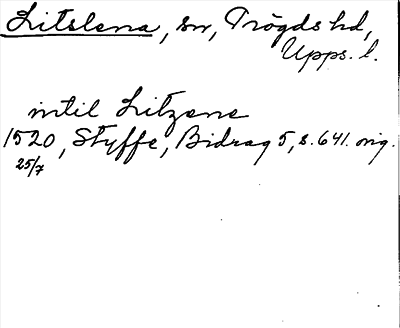 Litslena, sn, Trögds hd,
Upps. l.
intil Litzene
1520, Styffe, Bidrag 5, s. 641. orig.
25/7